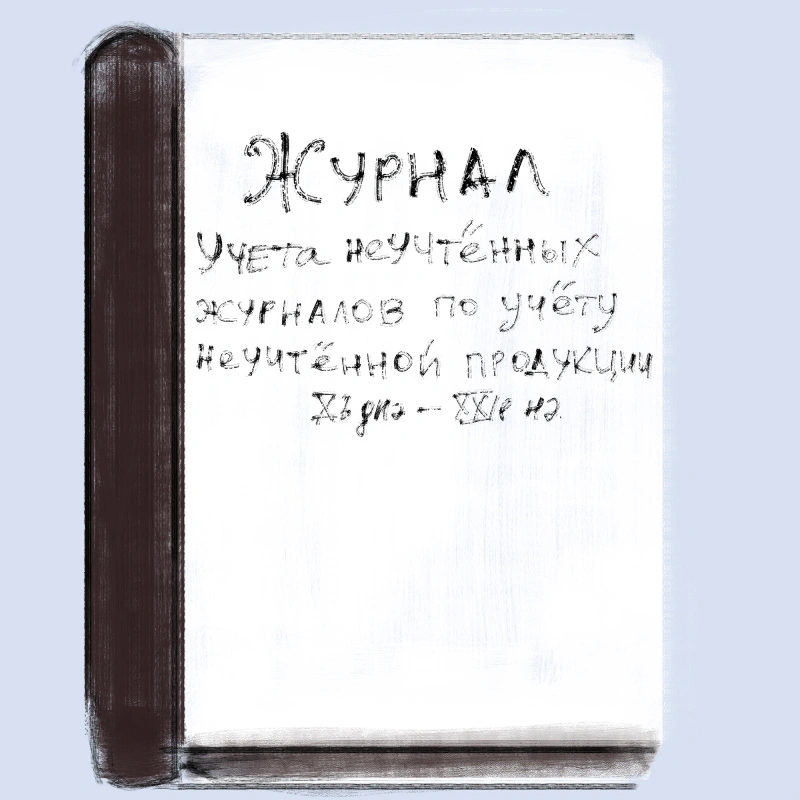 Журнал
учета неучтённых
журналов по учёту
неучтённой продукции
днэ – нэ.